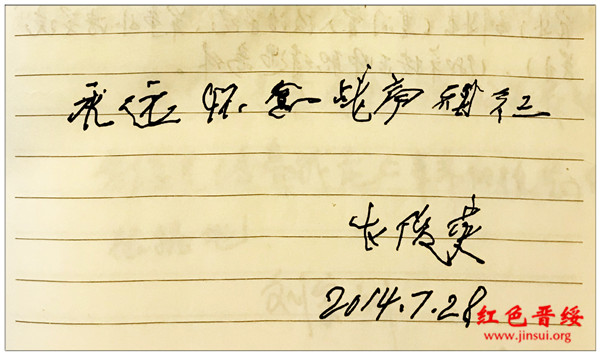 永远怀念战声剧社
2014.7.28
红色晋绥
www.jinsui.org